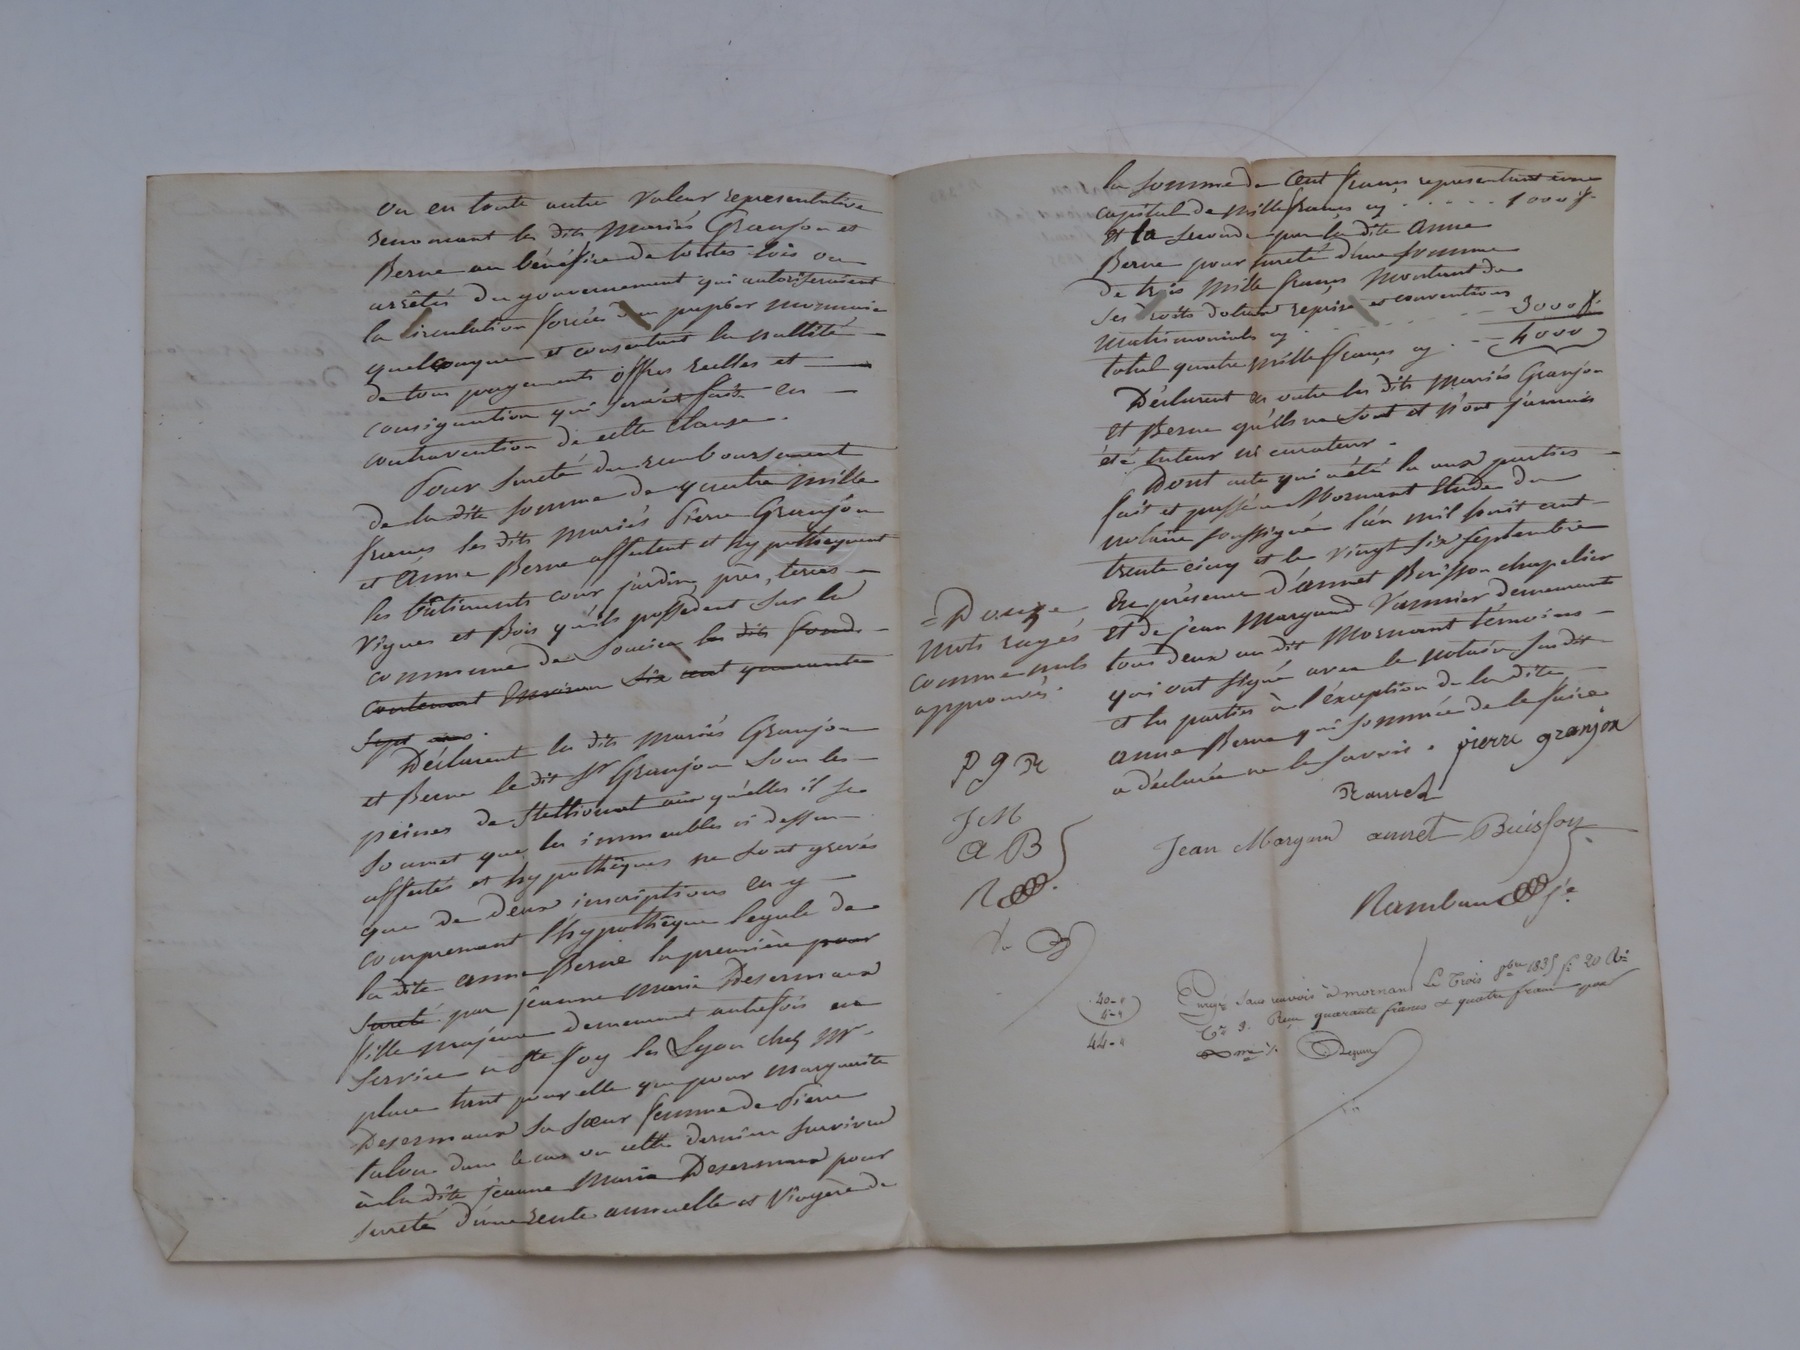 ou en toute autre valeur representative
renoncant les dits mariés Granjon et
Berne au bénéfice de toutes lois ou
arrêtés du gouvernement qui autoriseraient
la circulation forcée d'un papier monnaie
quelconque et consentant la nullité
de tous payements offres reelles et
consignation qui seraient faits en
contravention de cette clause.
Pour sureté du remboursement
de la dite somme de quatre mille
francs les dits mariés Pierre Granjon
et Anne Berne affectent et hypothequent
les bâtiments cour jardin, près, terres
vignes et Bois qu'ils possedent sur la
commune de Soucieu les dits fonds
contenant environ six cent quarante
sept ares.
Déclarent les dits mariés Granjon
et Berne le dit Sr Granjon sous les
peines de stellionat aux quelles il se
soumet que les immeubles ci dessus
affectés et hypothêqués ne sont grevés
que de deux inscriptions en y
comprenant l'hypothêque legale de
la dite anne Berne la première pour
sureté par jeanne Marie Desermaux
fille majeure demeurant autrefois en
service a Ste foy les Lyon chez Mr
place tant pour elle que pour Marguerite
Desermaux sa sœur femme de Pierre
dans le cas ou cette dernière survivra
à la dite jeanne Marie Desermaux pour
sureté d'une rente annuelle et viagère de
la somme de Cent francs representant un
capital de mille francs cy . . . . . 1000 f.
et la seconde par la dite Anne
Berne pour sureté d'une somme
de trois mille francs montant de
ses droits dotaux reprises et conventions
matrimoniales cy . . . 3000 f.
total quatre mille francs cy . . 4000
Déclarent en outre les dits mariés Granjon
et Berne qu'ils ne sont et n'ont jamais
été tuteur ni curateur.
Dont acte qui a été lu aux parties
fait et passé a Mornant Etude du
notaire soussigné l'an mil huit cent
trente cinq et le vingt six septembre
En présence d'annet Buisson chapelier
et de jean Margand Vannier demeurant
tous deux au dit Mornant témoins
qui ont signé avec le notaire susdit
et les parties à l'éxception de la dite
anne Berne qui sommée de le faire
a déclarée ne le savoir. pierre granjon
= Douze
mots rayés
comme nuls
approuvés.
P g R
J M
a B
Jean Margand annet Buisson
20 - "
4 - "
44 - "
Enregé sans renvois à mornant Le Trois 8bre 1835 fo 20 Ro
Ce 9. Reçu quarante francs et quatre francs pour